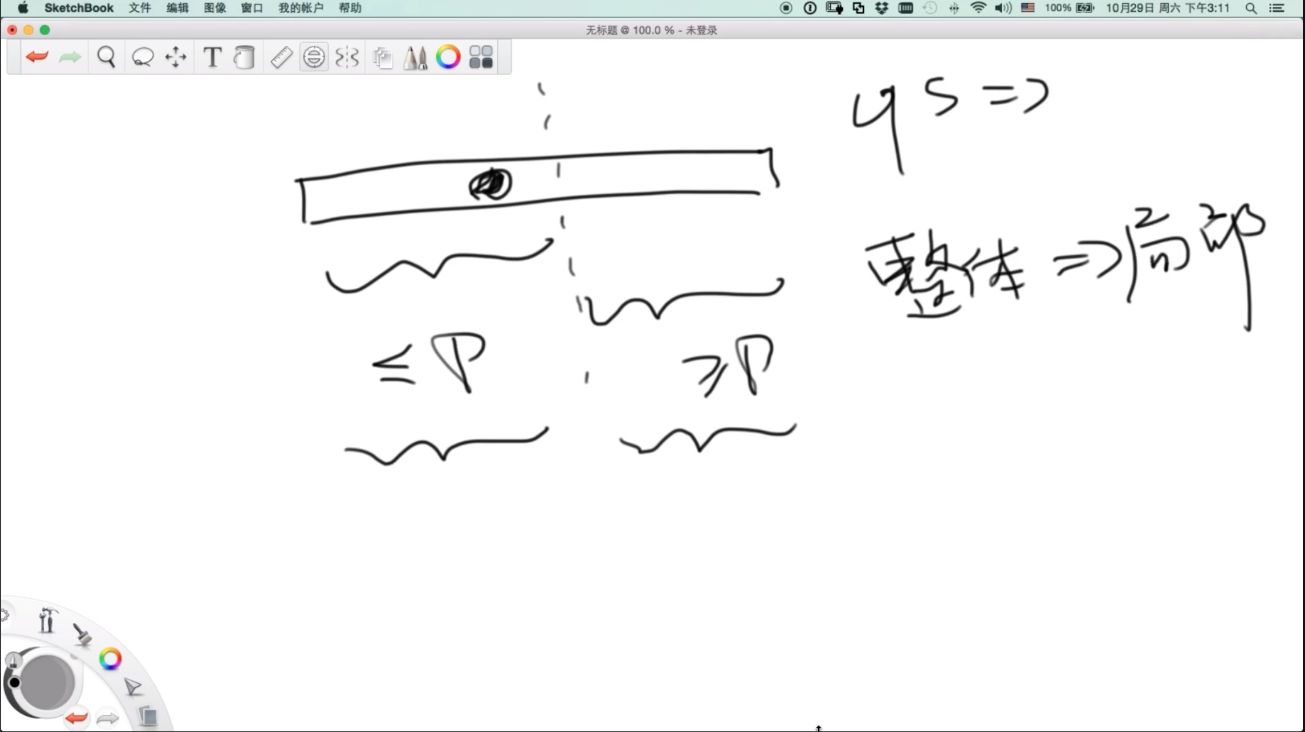 SketchBook 文件 编辑 图像 窗口 我的帐户 帮助 100% 10月29日 周六 下午3:11
无标题 @ 100.0 % - 未登录
T
qs =>
整体 => 局部
≤ P ≥ P